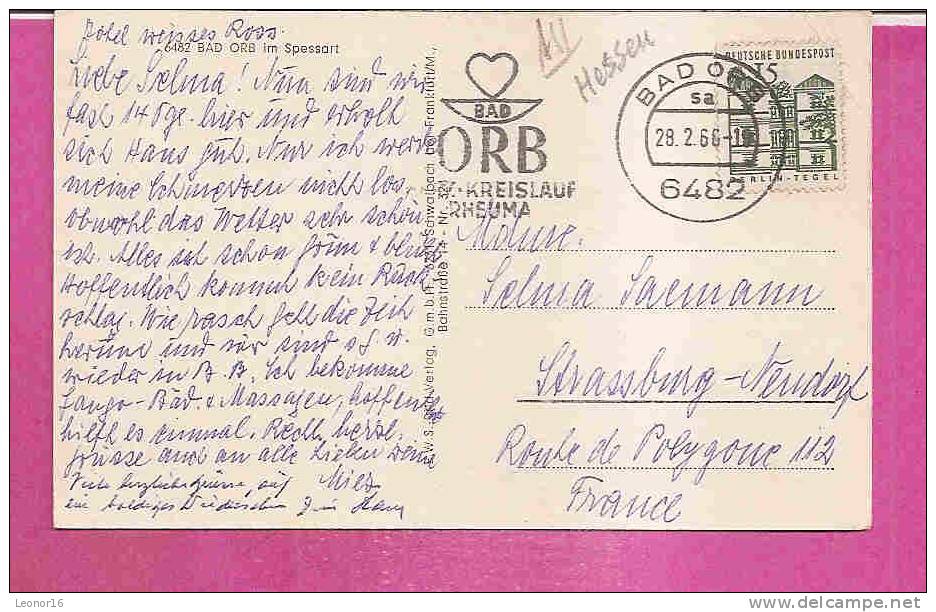 Hotel weisses Ross.
6482 BAD ORB im Spessart
Liebe Selma! Nun sind wir
fast 14 Tge. hier und erholt
sich Hans gut. Nur ich werde
meine Schmerzen nicht los,
obwohl das Wetter sehr schön
ist. Alles ist schon grün & blüht
Hoffentlich kommt kein Rück-
schlag. Wie rasch geht die Zeit
herum und wir sind
wieder in B. B. Ich bekomme
Fango-Bäd. & Massagen, hoffentl.
hilft es einmal. Recht herzl.
Grüsse auch an alle Lieben
Viele herzliche Grüsse, auf
ein baldiges Wiedersehen Hans
Bahnstraße 14 - Nr. 321
Hessen
BAD
ORB
KREISLAUF
RHEUMA
BAD ORB
sa
28.2.66
6482
DEUTSCHE BUNDESPOST
15
BERLIN-TEGEL
Mdme.
Selma Saemann
Strassburg-Neudorf
Route de Polygone 112
France
Leonor16
delcampe.net